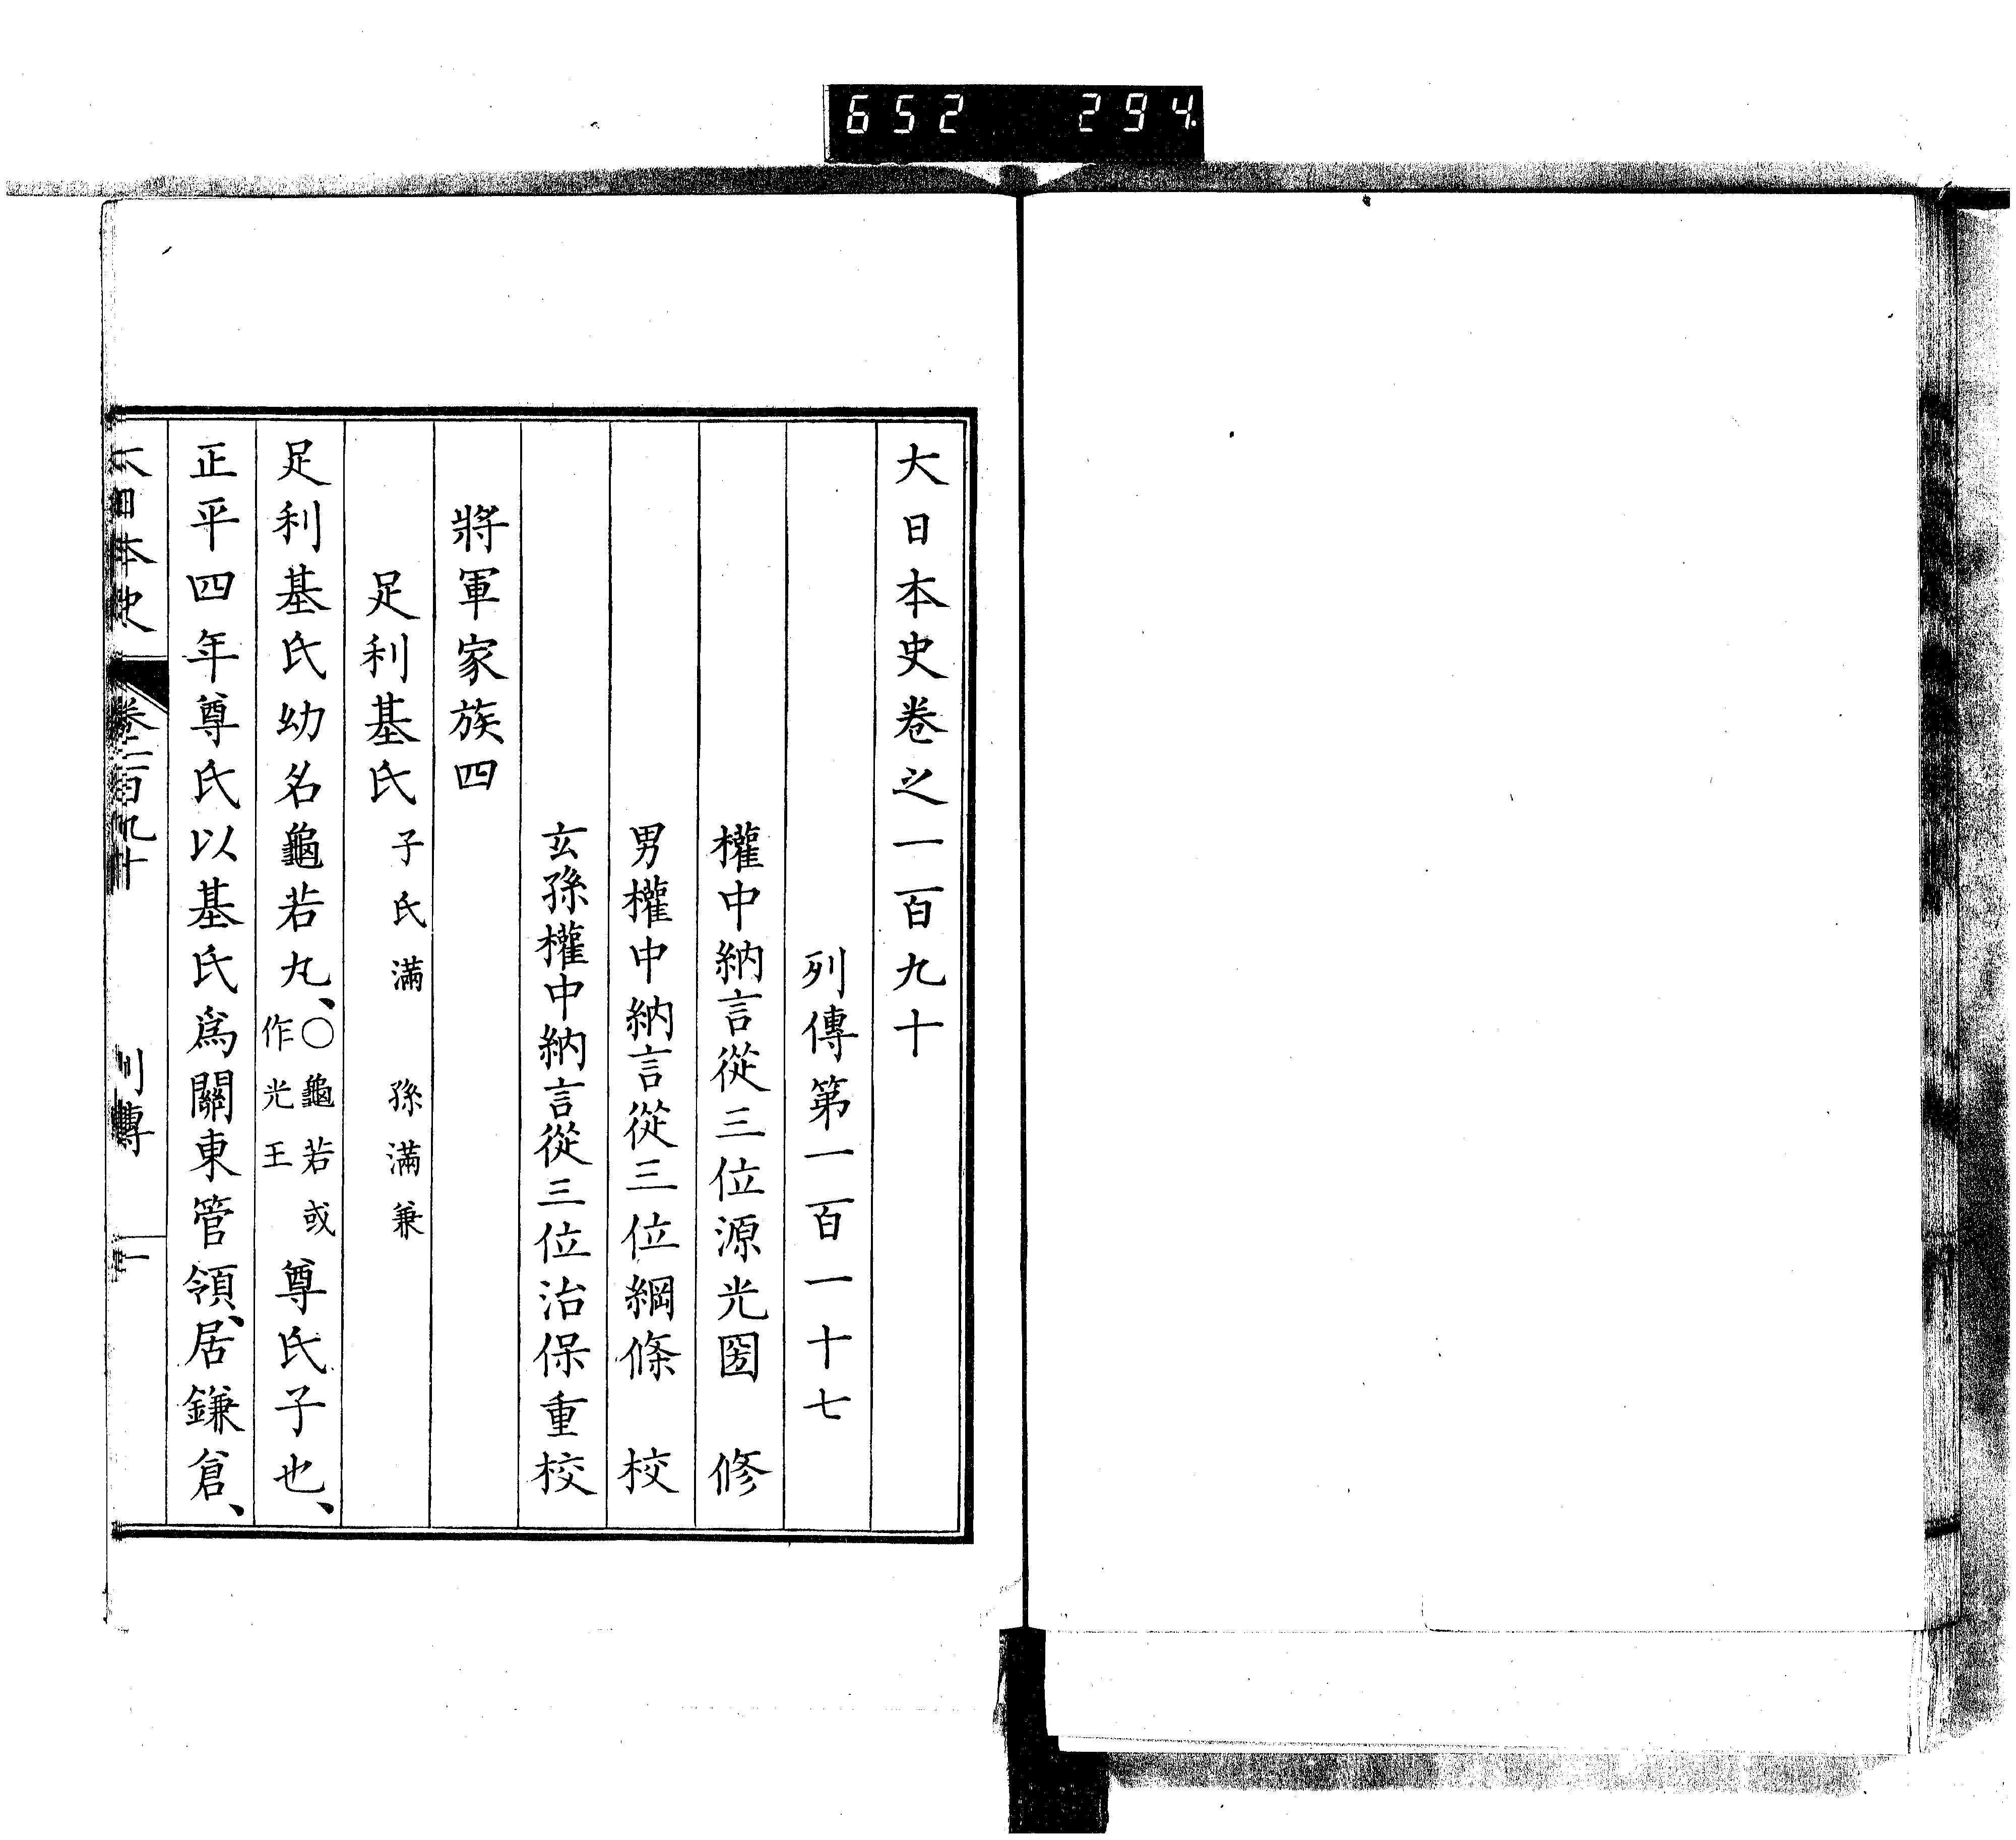 652 294
大日本史卷之一百九十
列傳第一百一十七
權中納言從三位源光圀 修
男權中納言從三位綱條 校
玄孫權中納言從三位治保重校
將軍家族四
足利基氏 子氏滿 孫滿兼
足利基氏幼名龜若丸、○龜若或作光王尊氏子也、
正平四年尊氏以基氏爲關東管領、居鎌倉、
大日本史 卷一百九十 列傳 一